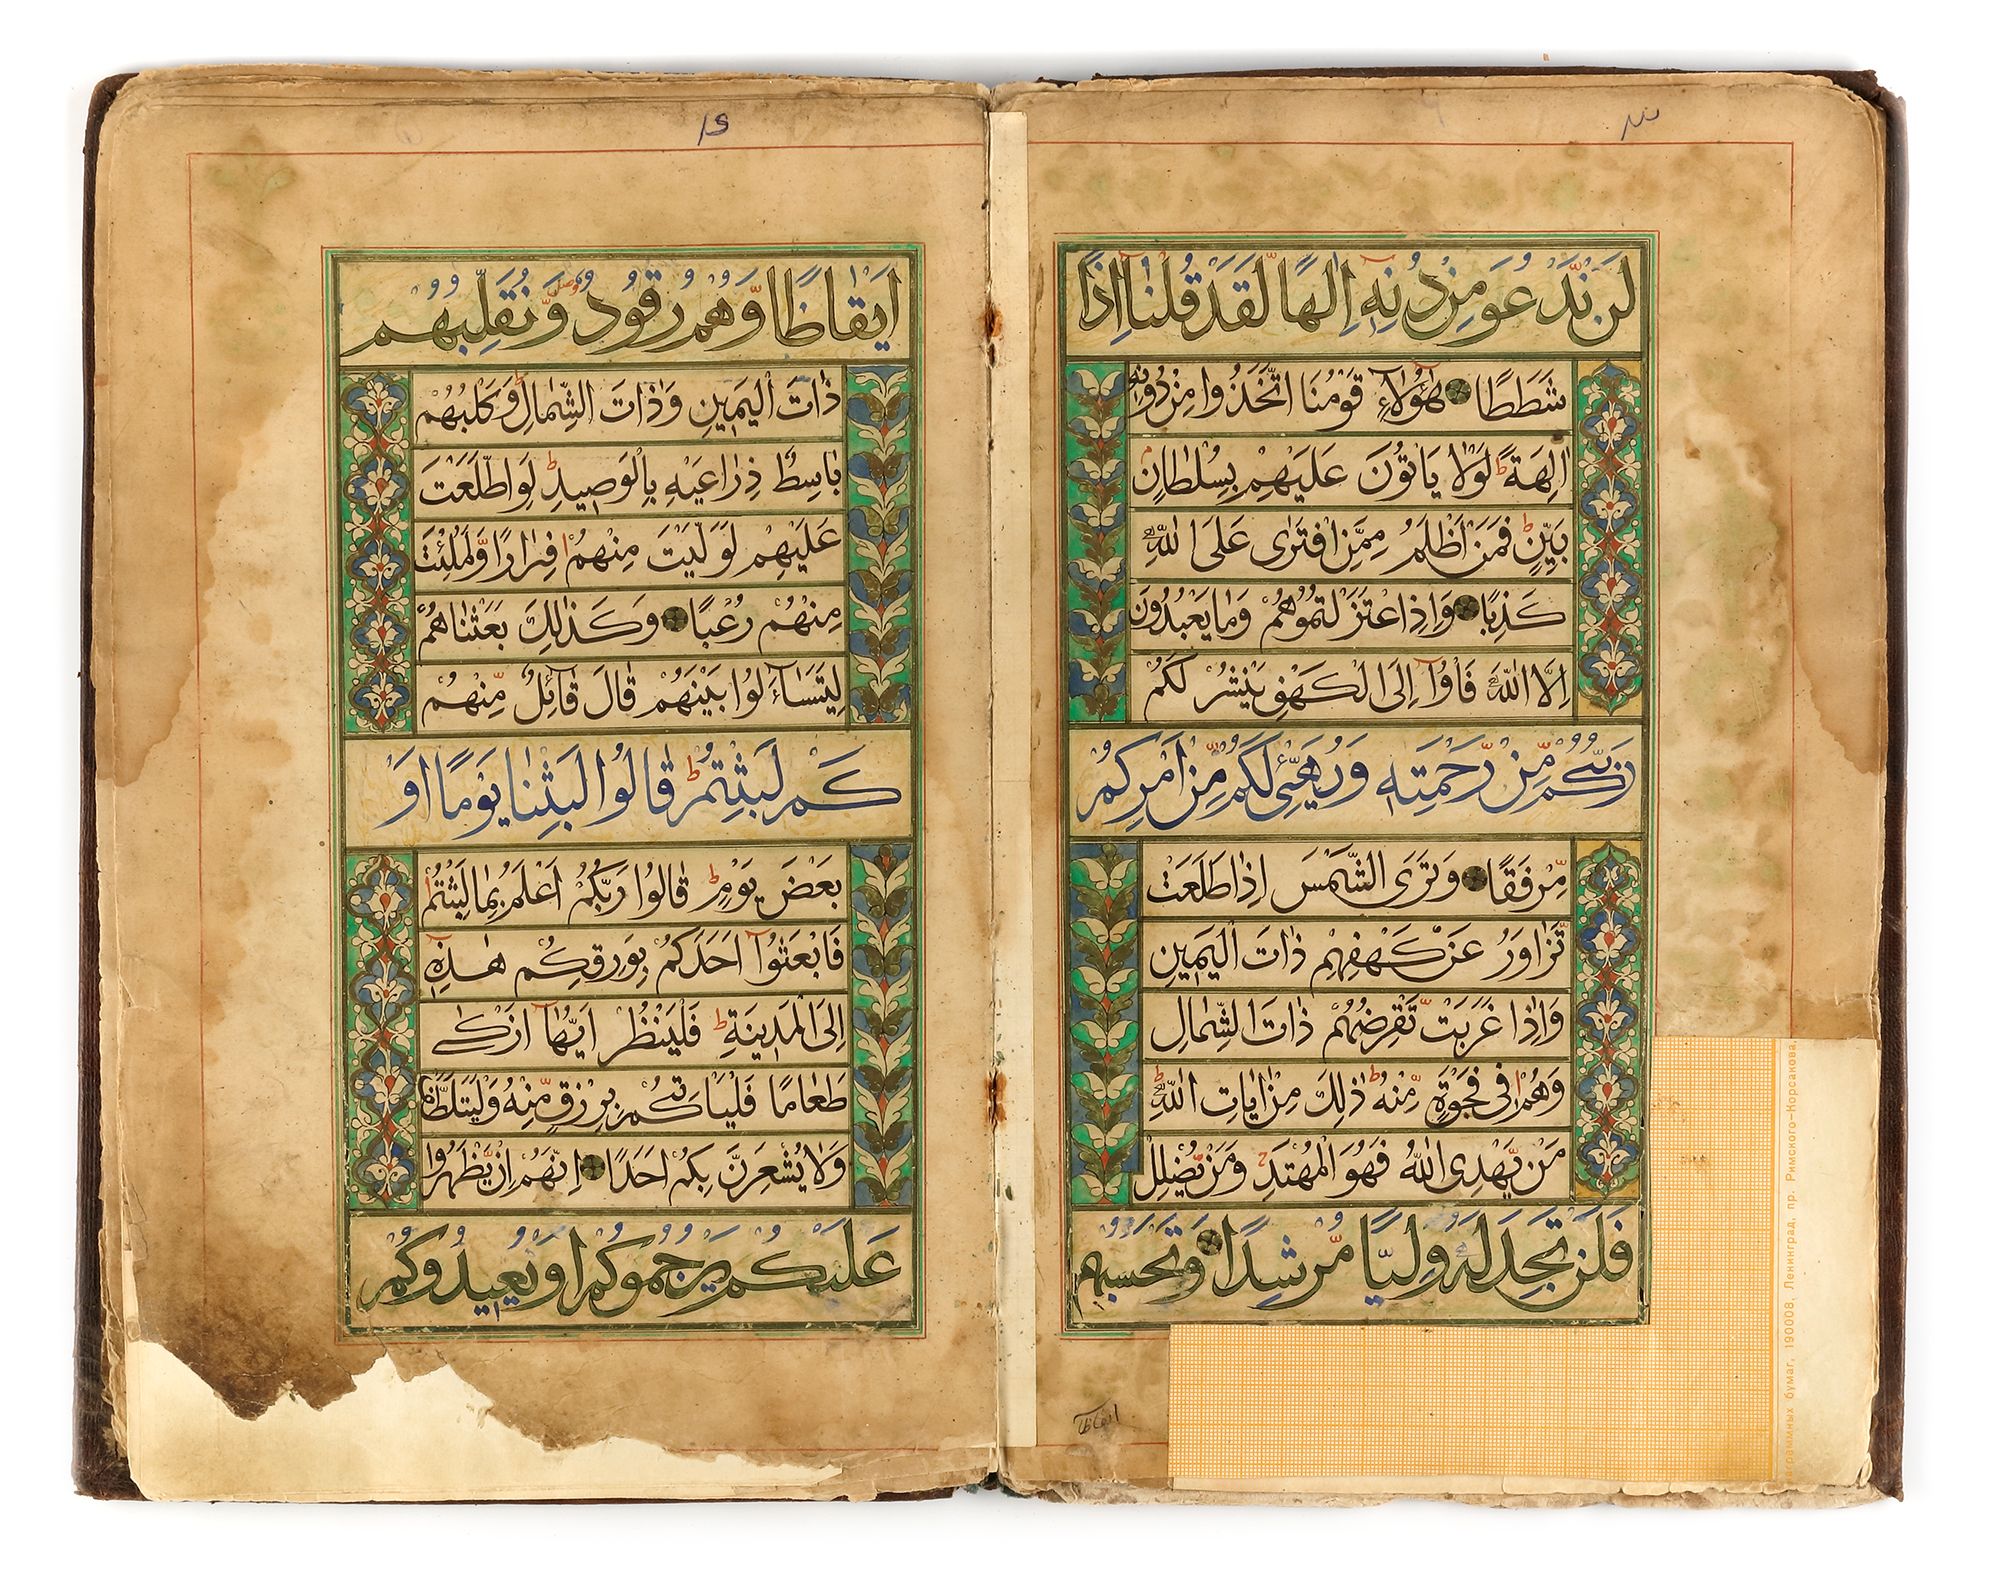 لَن نَّدْعُوَ مِن دُونِهِ إِلٰهًا لَّقَدْ قُلْنَا إِذًا
شَطَطًا هٰؤُلَاءِ قَوْمُنَا اتَّخَذُوا مِن دُونِهِ
اٰلِهَةً ط لَوْلَا يَاتُونَ عَلَيْهِم بِسُلْطَانٍ
بَيِّنٍ ط فَمَنْ اَظْلَمُ مِمَّنِ افْتَرٰى عَلَى اللّٰهِ
كَذِبًا وَاِذِ اعْتَزَلْتُمُوهُمْ وَمَا يَعْبُدُونَ
اِلَّا اللّٰهَ فَاْوُا اِلَى الْكَهْفِ يَنْشُرْ لَكُمْ
رَبُّكُم مِّن رَّحْمَتِهِ وَيُهَيِّئْ لَكُم مِّنْ اَمْرِكُم
مِّرْفَقًا وَتَرَى الشَّمْسَ اِذَا طَلَعَتْ
تَّزَاوَرُ عَن كَهْفِهِمْ ذَاتَ الْيَمِينِ
وَاِذَا غَرَبَت تَّقْرِضُهُمْ ذَاتَ الشِّمَالِ
وَهُمْ فِى فَجْوَةٍ مِّنْهُ ط ذٰلِكَ مِنْ اٰيَاتِ اللّٰهِ ط
مَن يَّهْدِى اللّٰهُ فَهُوَ الْمُهْتَدِ ج وَمَن يُّضْلِلْ
فَلَن تَجِدَ لَهُ وَلِيًّا مُّرْشِدًا وَتَحْسَبُهُمْ
ايقاظا
اَيْقَاظًا وَّهُمْ رُقُودٌ وَّنُقَلِّبُهُمْ
ذَاتَ الْيَمِينِ وَذَاتَ الشِّمَالِ وَكَلْبُهُمْ
بَاسِطٌ ذِرَاعَيْهِ بِالْوَصِيدِ ط لَوِ اطَّلَعْتَ
عَلَيْهِمْ لَوَلَّيْتَ مِنْهُمْ فِرَارًا وَّلَمُلِئْتَ
مِنْهُمْ رُعْبًا وَكَذٰلِكَ بَعَثْنَاهُمْ
لِيَتَسَاءَلُوا بَيْنَهُمْ قَالَ قَائِلٌ مِّنْهُمْ
كَمْ لَبِثْتُمْ ط قَالُوا لَبِثْنَا يَوْمًا اَوْ
بَعْضَ يَوْمٍ ط قَالُوا رَبُّكُمْ اَعْلَمُ بِمَا لَبِثْتُمْ
فَابْعَثُوا اَحَدَكُم بِوَرِقِكُمْ هٰذِهِ
اِلَى الْمَدِينَةِ ط فَلْيَنْظُرْ اَيُّهَا اَزْكٰى
طَعَامًا فَلْيَاتِكُم بِرِزْقٍ مِّنْهُ وَلْيَتَلَطَّفْ
وَلَا يُشْعِرَنَّ بِكُمْ اَحَدًا اِنَّهُمْ اِن يَّظْهَرُوا
عَلَيْكُمْ يَرْجُمُوكُمْ اَوْ يُعِيدُوكُمْ
граммных бумаг, 190008, Ленинград, пр. Римского-Корсакова,